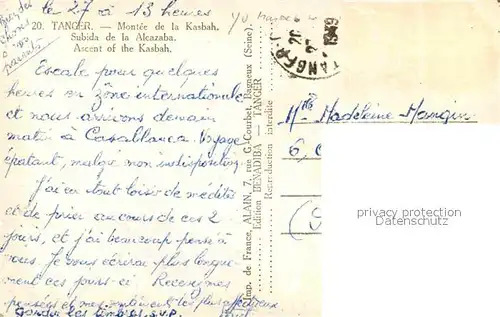 le 27 à 13 heures
20. TANGER. — Montée de la Kasbah.
Subida de la Alcazaba.
Ascent of the Kasbah.
Escale pour quelques
heures en zône internationale
et nous arrivons demain
matin à Casablanca. Voyage
épatant, malgré mon indisposition.
J'ai eu tout loisir de méditer
et de prier au cours de ces 2
jours, et j'ai beaucoup pensé à
vous. Je vous écrirai plus longue-
ment ces jours-ci. Recevez mes
pensées et mes sentiments les plus affectueux
Garder les timbres S.V.P.
Imp. de France, ALAIN, 7, rue G.-Courbet, Bagneux (Seine)
Edition BENADIBA — TANGER
Reproduction interdite
TANGER
1949
Mlle Madeleine Mangin
6,
privacy protection
Datenschutz